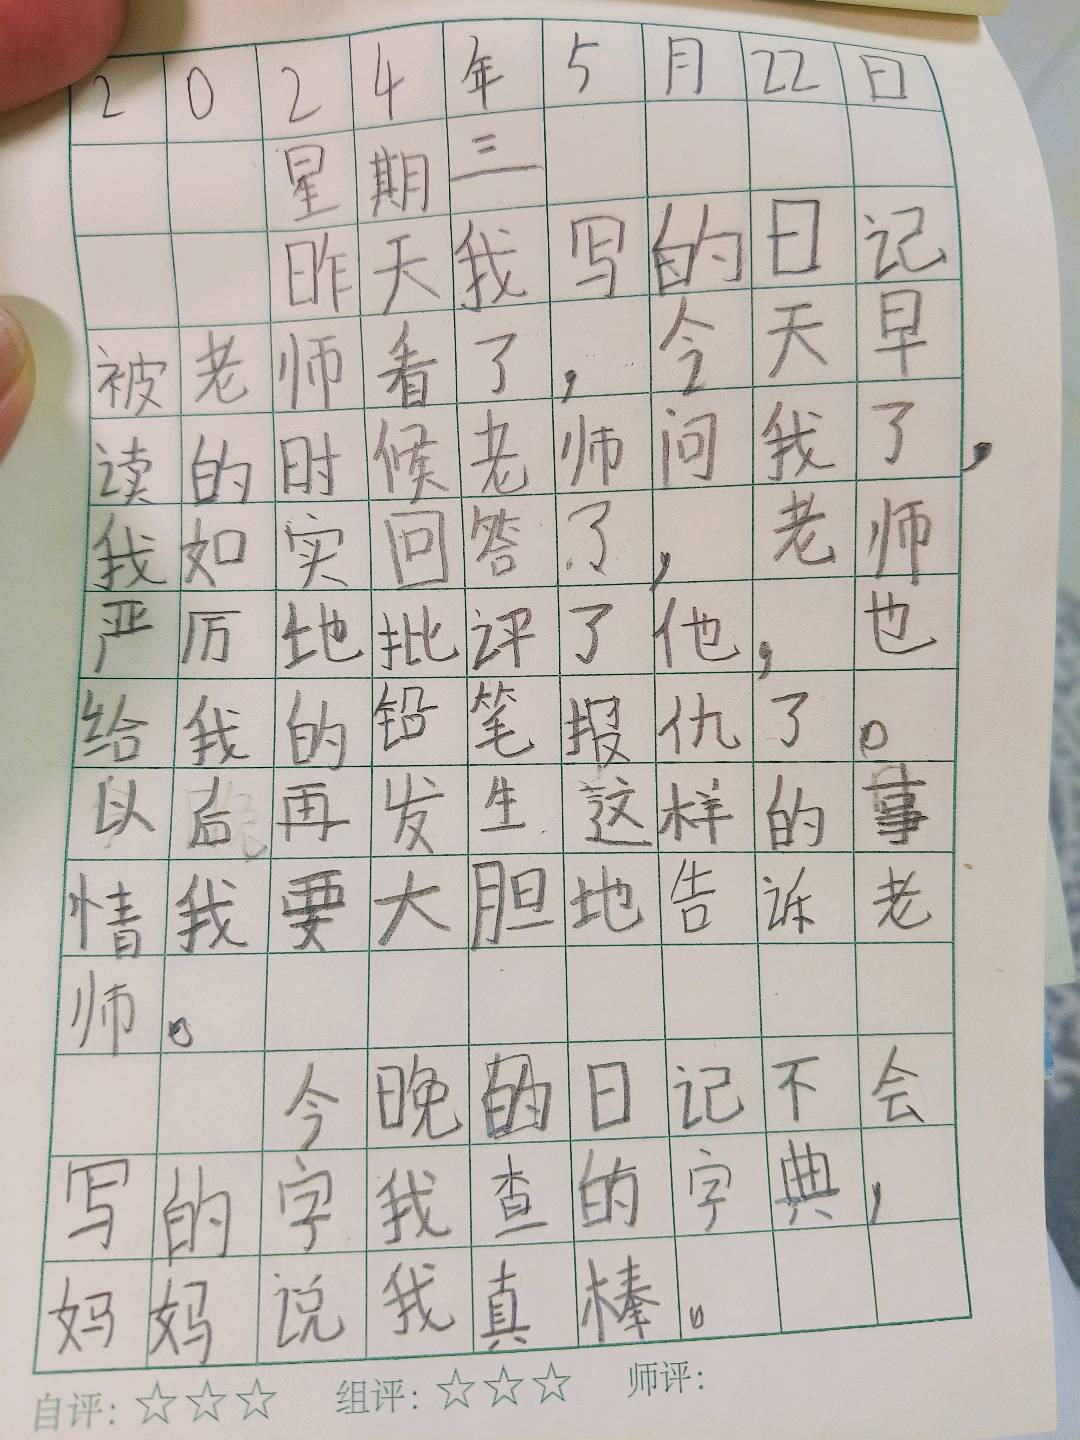 2024年5月22日
星期三
昨天我写的日记
被老师看了，今天早
读的时候老师问我了，
我如实回答了，老师
严厉地批评了他，也
给我的铅笔报仇了。
以后再发生这样的事
情我要大胆地告诉老
师。
今晚的日记不会
写的字我查的字典，
妈妈说我真棒。
自评：☆☆☆ 组评：☆☆☆ 师评：